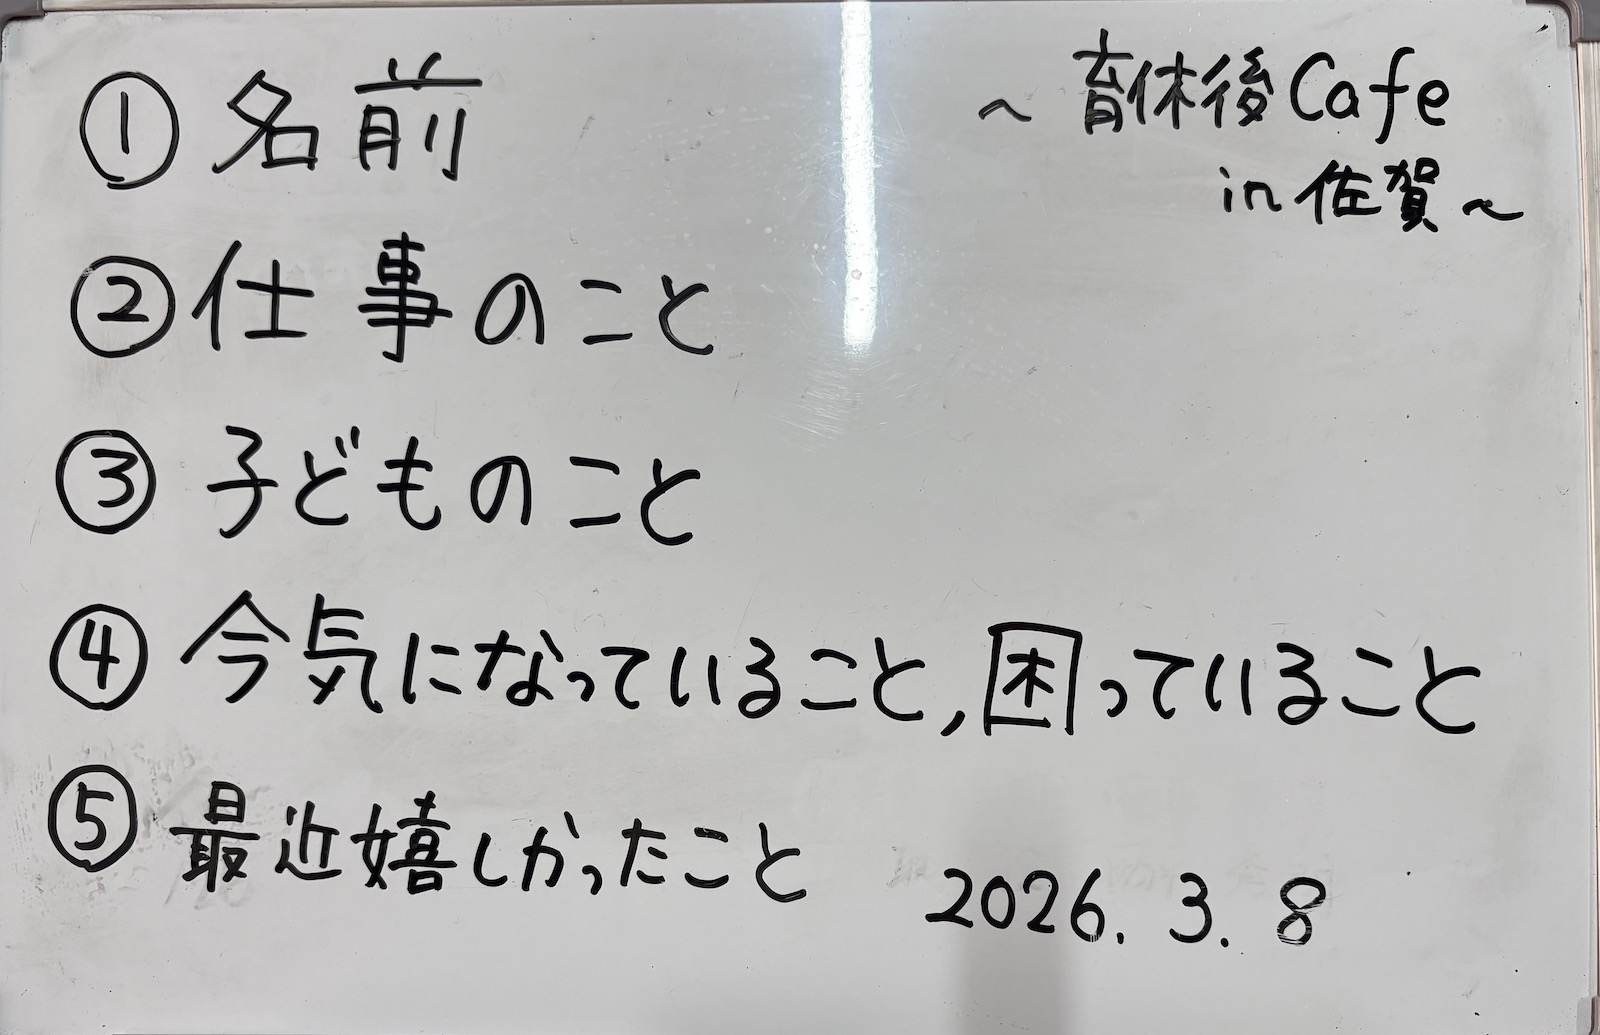 ～育休後Cafe
in佐賀～
①名前
②仕事のこと
③子どものこと
④今気になっていること,困っていること
⑤最近嬉しかったこと
2026.3.8